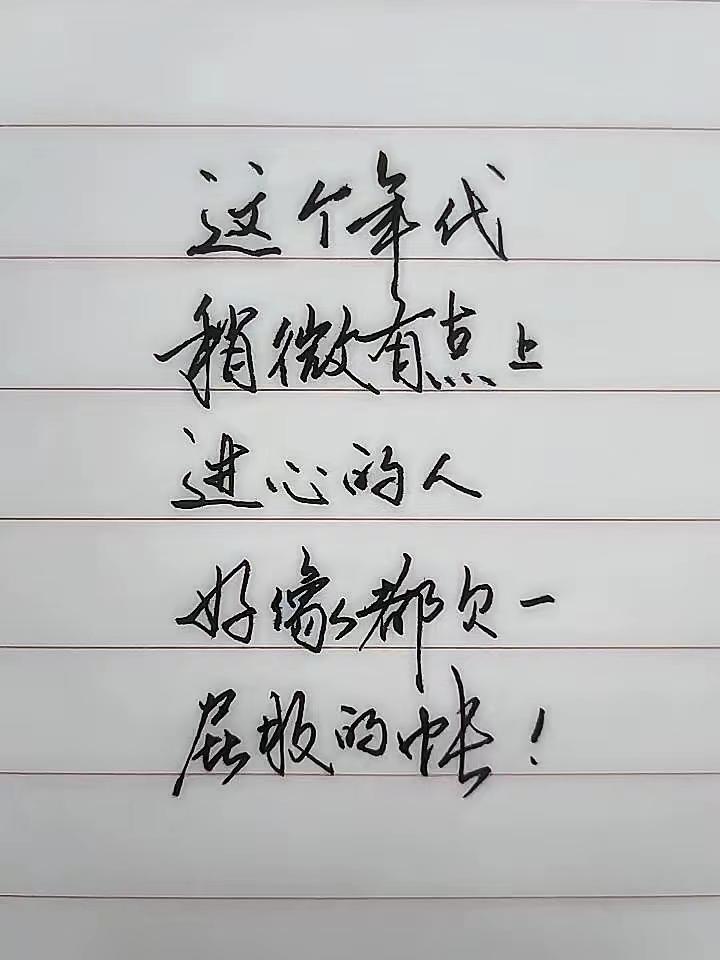 这个年代
稍微有点上
进心的人
好像都欠一
屁股的帐！